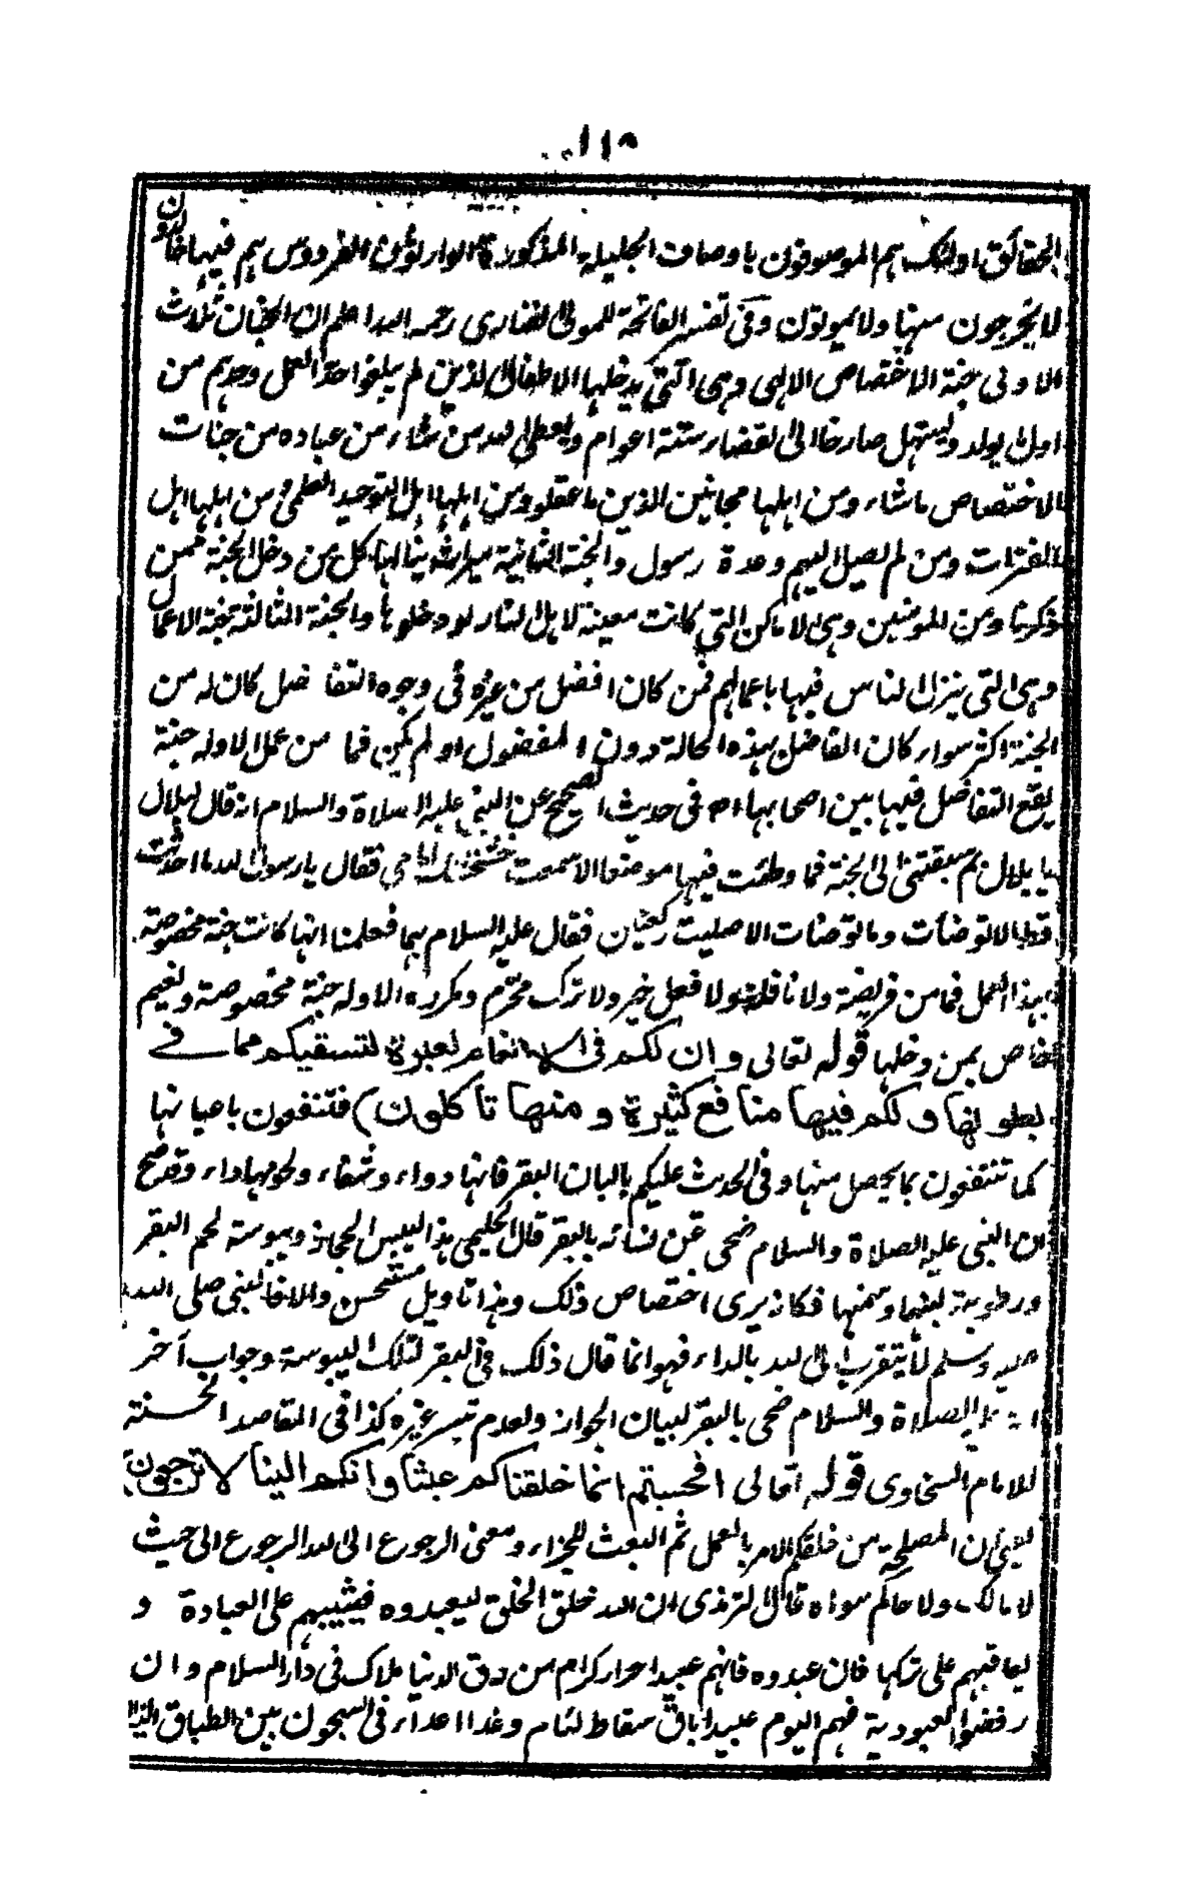 ١١٥
الحقائق اولئك هم الموصوفون باوصاف الجليلة المذكورة الوارثون الفردوس هم فيها خالدون
لا يخرجون منها ولا يموتون وفى تفسير الفاتحة للمولى الفنارى رحمه الله اعلم ان الجنان ثلاث
الاولى جنة الاختصاص الالهى وهى التى يدخلها الاطفال الذين لم يبلغوا حد العمل وحدهم من
اول يولد ويستهل صارخا الى انقضاء ستة اعوام ويعطى الله من شاء من عباده من جنات
الاختصاص ما شاء ومن اهلها مجانين الذين ما عقلوا ومن اهلها اهل التوحيد العلمى ومن اهلها اهل
الفترات ومن لم يصل اليهم دعوة رسول والجنة الثانية ميراث ينالها كل من دخل الجنة ممن
ذكرنا ومن المومنين وهى الاماكن التى كانت معينة لاهل النار لو دخلوها والجنة الثالثة جنة الاعمال
وهى التى ينزل الناس فيها باعمالهم فمن كان افضل من غيره فى وجوه التفاضل كان له من
الجنة اكثر سواء كان الفاضل بهذه الحالة دون المفضول او لم يكن فما من عمل الا وله جنة
يقع التفاضل فيها بين اصحابها اه فى حديث الصحيح عن النبى عليه السلاة والسلام انه قال لبلال
يا بلال بم سبقتنى الى الجنة فما وطئت فيها موضعا الا سمعت خشخشتك امامى فقال يا رسول الله ما احدثت
قط الا توضأت وما توضأت الا صليت ركعتين فقال عليه السلام بهما فعلمنا انها كانت جنة مخصوصة
بهذا العمل فما من فريضة ولا نافلة ولا فعل خير ولا ترك محرم ومكروه الا وله جنة مخصوصة ونعيم
خاص بمن دخلها قوله تعالى وان لكم فى الانعام لعبرة لنسقيكم مما فى
بطونها ولكم فيها منافع كثيرة ومنها تأكلون) فتنفعون باعيانها
كما تنتفعون بما يحصل منها وفى الحديث عليكم بالبان البقر فانها دواء وشفاء ولحومها داء وقد صح
ان النبى عليه الصلاة والسلام ضحى عن نسائه بالبقر قال الحليمى هذا ليبس الحجاز ويبوسة لحم البقر
ورطوبة لبنها وسمنها فكانه يرى اختصاص ذلك وهذا تاويل مستحسن والا فالنبى صلى الله
عليه وسلم لا يتقرب الى الله بالداء فهو انما قال ذلك فى البقر لتلك اليبوسة وجواب آخر
انه عليه الصلاة والسلام ضحى بالبقر لبيان الجواز ولعدم تيسر غيره كذا فى المقاصد الحسنة
للامام السخاوى قوله تعالى افحسبتم انما خلقناكم عبثا وانكم الينا لا ترجعون)
يعنى ان المصلحة من خلقكم الامر بالعمل ثم البعث للجزاء ومعنى الرجوع الى الله الرجوع الى حيث
لا مالك ولا حاكم سواه قال الترمذى ان الله خلق الخلق ليعبدوه فيثيبهم على العبادة و
يعاقبهم على تركها فان عبدوه فانهم عبيد احرار كرام من رق الدنيا ملاك فى دار السلام وان
رفضوا العبودية فهم اليوم عبيد اباق سقاط لئام وغدا اعداء فى السجون بين الطباق